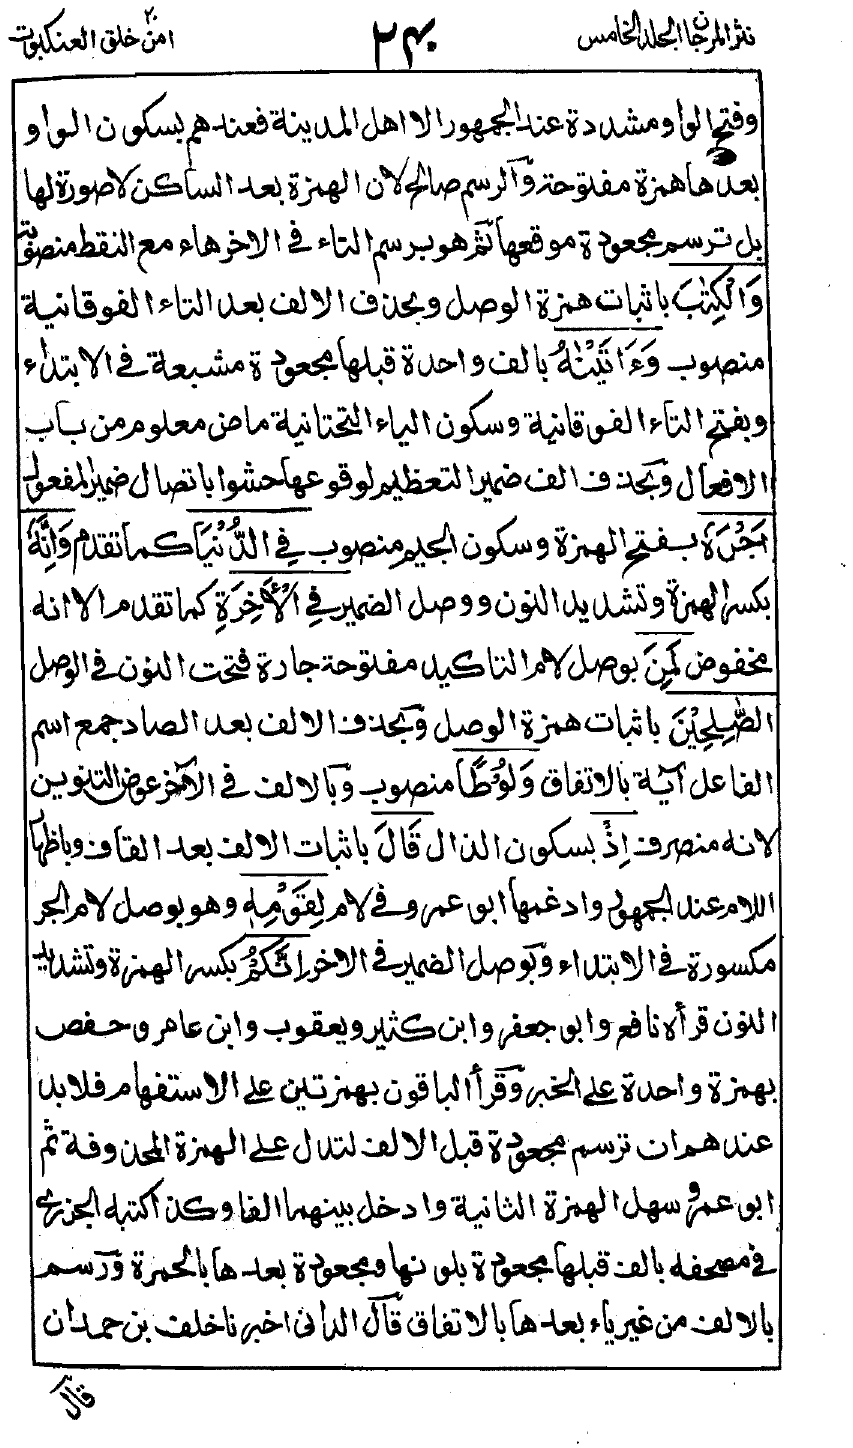 نثر المرجان الجلد الخامس
امن خلق ٢٠ العنكبوت
وفتح الواو مشددة عند الجمهور الا اهل المدينة فعندهم بسكون الواو و
بعدها همزة مفتوحة والرسم صالح لان الهمزة بعد الساكن لا صورة لها
بل ترسم مجعودة موقعها ثم هو برسم التاء في الاخر هاء مع النقط منصوبة
وَالْكِتٰبَ باثبات همزة الوصل وبحذف الالف بعد التاء الفوقانية
منصوب وَءَاتَيْنٰهُ بالف واحدة قبلها مجعودة مشبعة في الابتداء
وبفتح التاء الفوقانية وسكون الياء التحتانية ماض معلوم من باب
الافعال وبحذف الف ضمير التعظيم لوقوعها حشوا باتصال ضمير المفعول
اَجْرَهٗ بفتح الهمزة وسكون الجيم منصوب فِي الدُّنْيَا كما تقدم وَاِنَّهٗ
بكسر الهمزة وتشديد النون ووصل الضمير فِي الْاٰخِرَةِ كما تقدم الا انه
مخفوض لَمِنَ بوصل لام التاكيد مفتوحة جارة فتحت النون في الوصل
الصّٰلِحِيْنَ باثبات همزة الوصل وبحذف الالف بعد الصاد جمع اسم
الفاعل آية بالاتفاق وَلُوْطًا منصوب وبالالف في الآخر عوض التنوين
لانه منصرف اِذْ بسكون الذال قَالَ باثبات الالف بعد القاف وباظهار
اللام عند الجمهور وادغمها ابو عمرو في لام لِقَوْمِهٖ وهو بوصل لام الجر
مكسورة في الابتداء وبوصل الضمير في الاخر اِنَّكُمْ بكسر الهمزة وتشديد
النون قرأه نافع وابو جعفر وابن كثير ويعقوب وابن عامر وحفص
بهمزة واحدة على الخبر وقرأ الباقون بهمزتين على الاستفهام فلابد
عندهم ان ترسم مجعودة قبل الالف لتدل على الهمزة المحذوفة ثم
ابو عمرو سهل الهمزة الثانية وادخل بينهما الفا وكذا كتبه الجزري
في مصحفه بالف قبلها مجعودة بلونها ومجعودة بعدها بالحمرة ورسم
بالالف من غير ياء بعدها بالاتفاق قال الداني اخبرنا خلف بن حمدان
قال